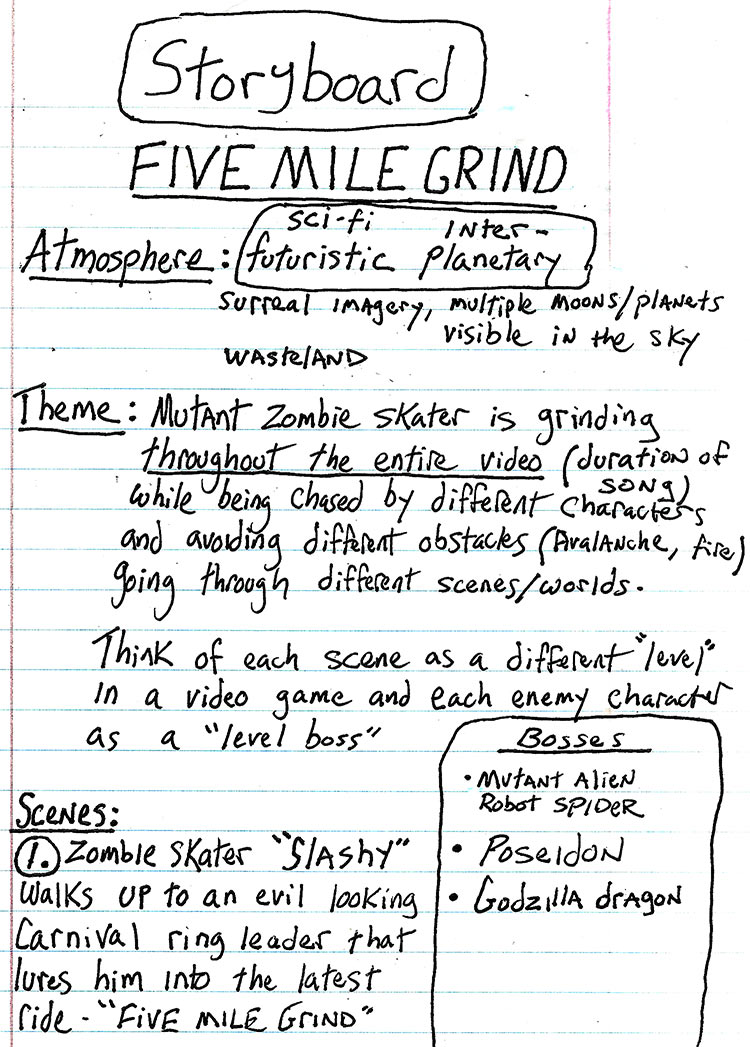 Storyboard
FIVE MILE GRIND
Atmosphere: sci-fi futuristic Inter-planetary
surreal imagery, multiple moons/planets
visible in the sky
wasteland
Theme: Mutant Zombie skater is grinding
throughout the entire video (duration of song)
while being chased by different characters
and avoiding different obstacles (Avalanche, fire)
going through different scenes/worlds.
Think of each scene as a different "level"
in a video game and each enemy character
as a "level boss"
Bosses
• Mutant Alien
Robot SPIDER
• Poseidon
• Godzilla dragon
Scenes:
1. Zombie skater "Slashy"
walks up to an evil looking
Carnival ring leader that
lures him into the latest
ride - "FIVE MILE GRIND"